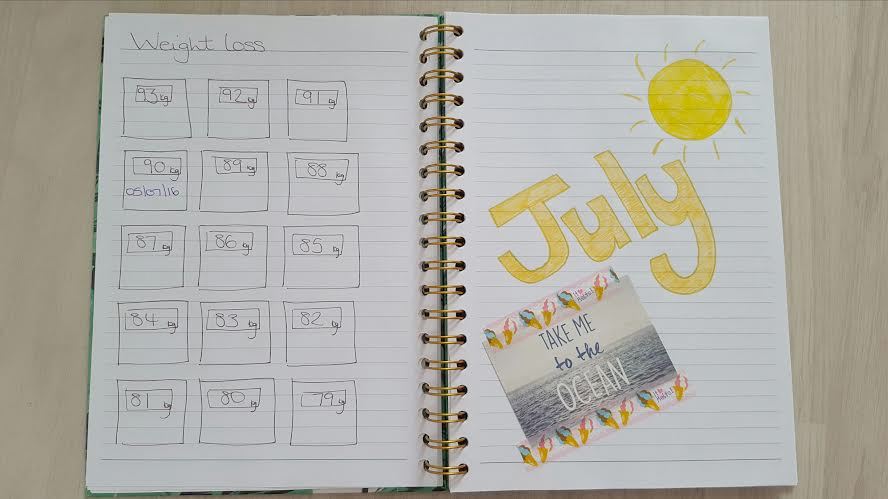 Weight loss
93 kg 92 kg 91 kg
90 kg 89 kg 88 kg
05/07/16
87 kg 86 kg 85 kg
84 kg 83 kg 82 kg
81 kg 80 kg 79 kg
July
TAKE ME
to the
OCEAN